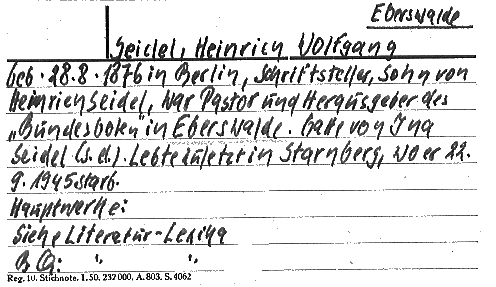 Eberswalde
Seidel, Heinrich Wolfgang
geb. 28.8.1876 in Berlin, Schriftsteller, Sohn von
Heinrich Seidel, war Pastor und Herausgeber des
„Bundesboten" in Eberswalde. Gatte von Ina
Seidel (s.d.). Lebte zuletzt in Starnberg, wo er 22.
9.1945 starb.
Hauptwerke:
Siehe Literatur-Lexika
B Q: " "
Reg. 10. Stichnote. 1.50. 237 000. A. 803. S. 4062